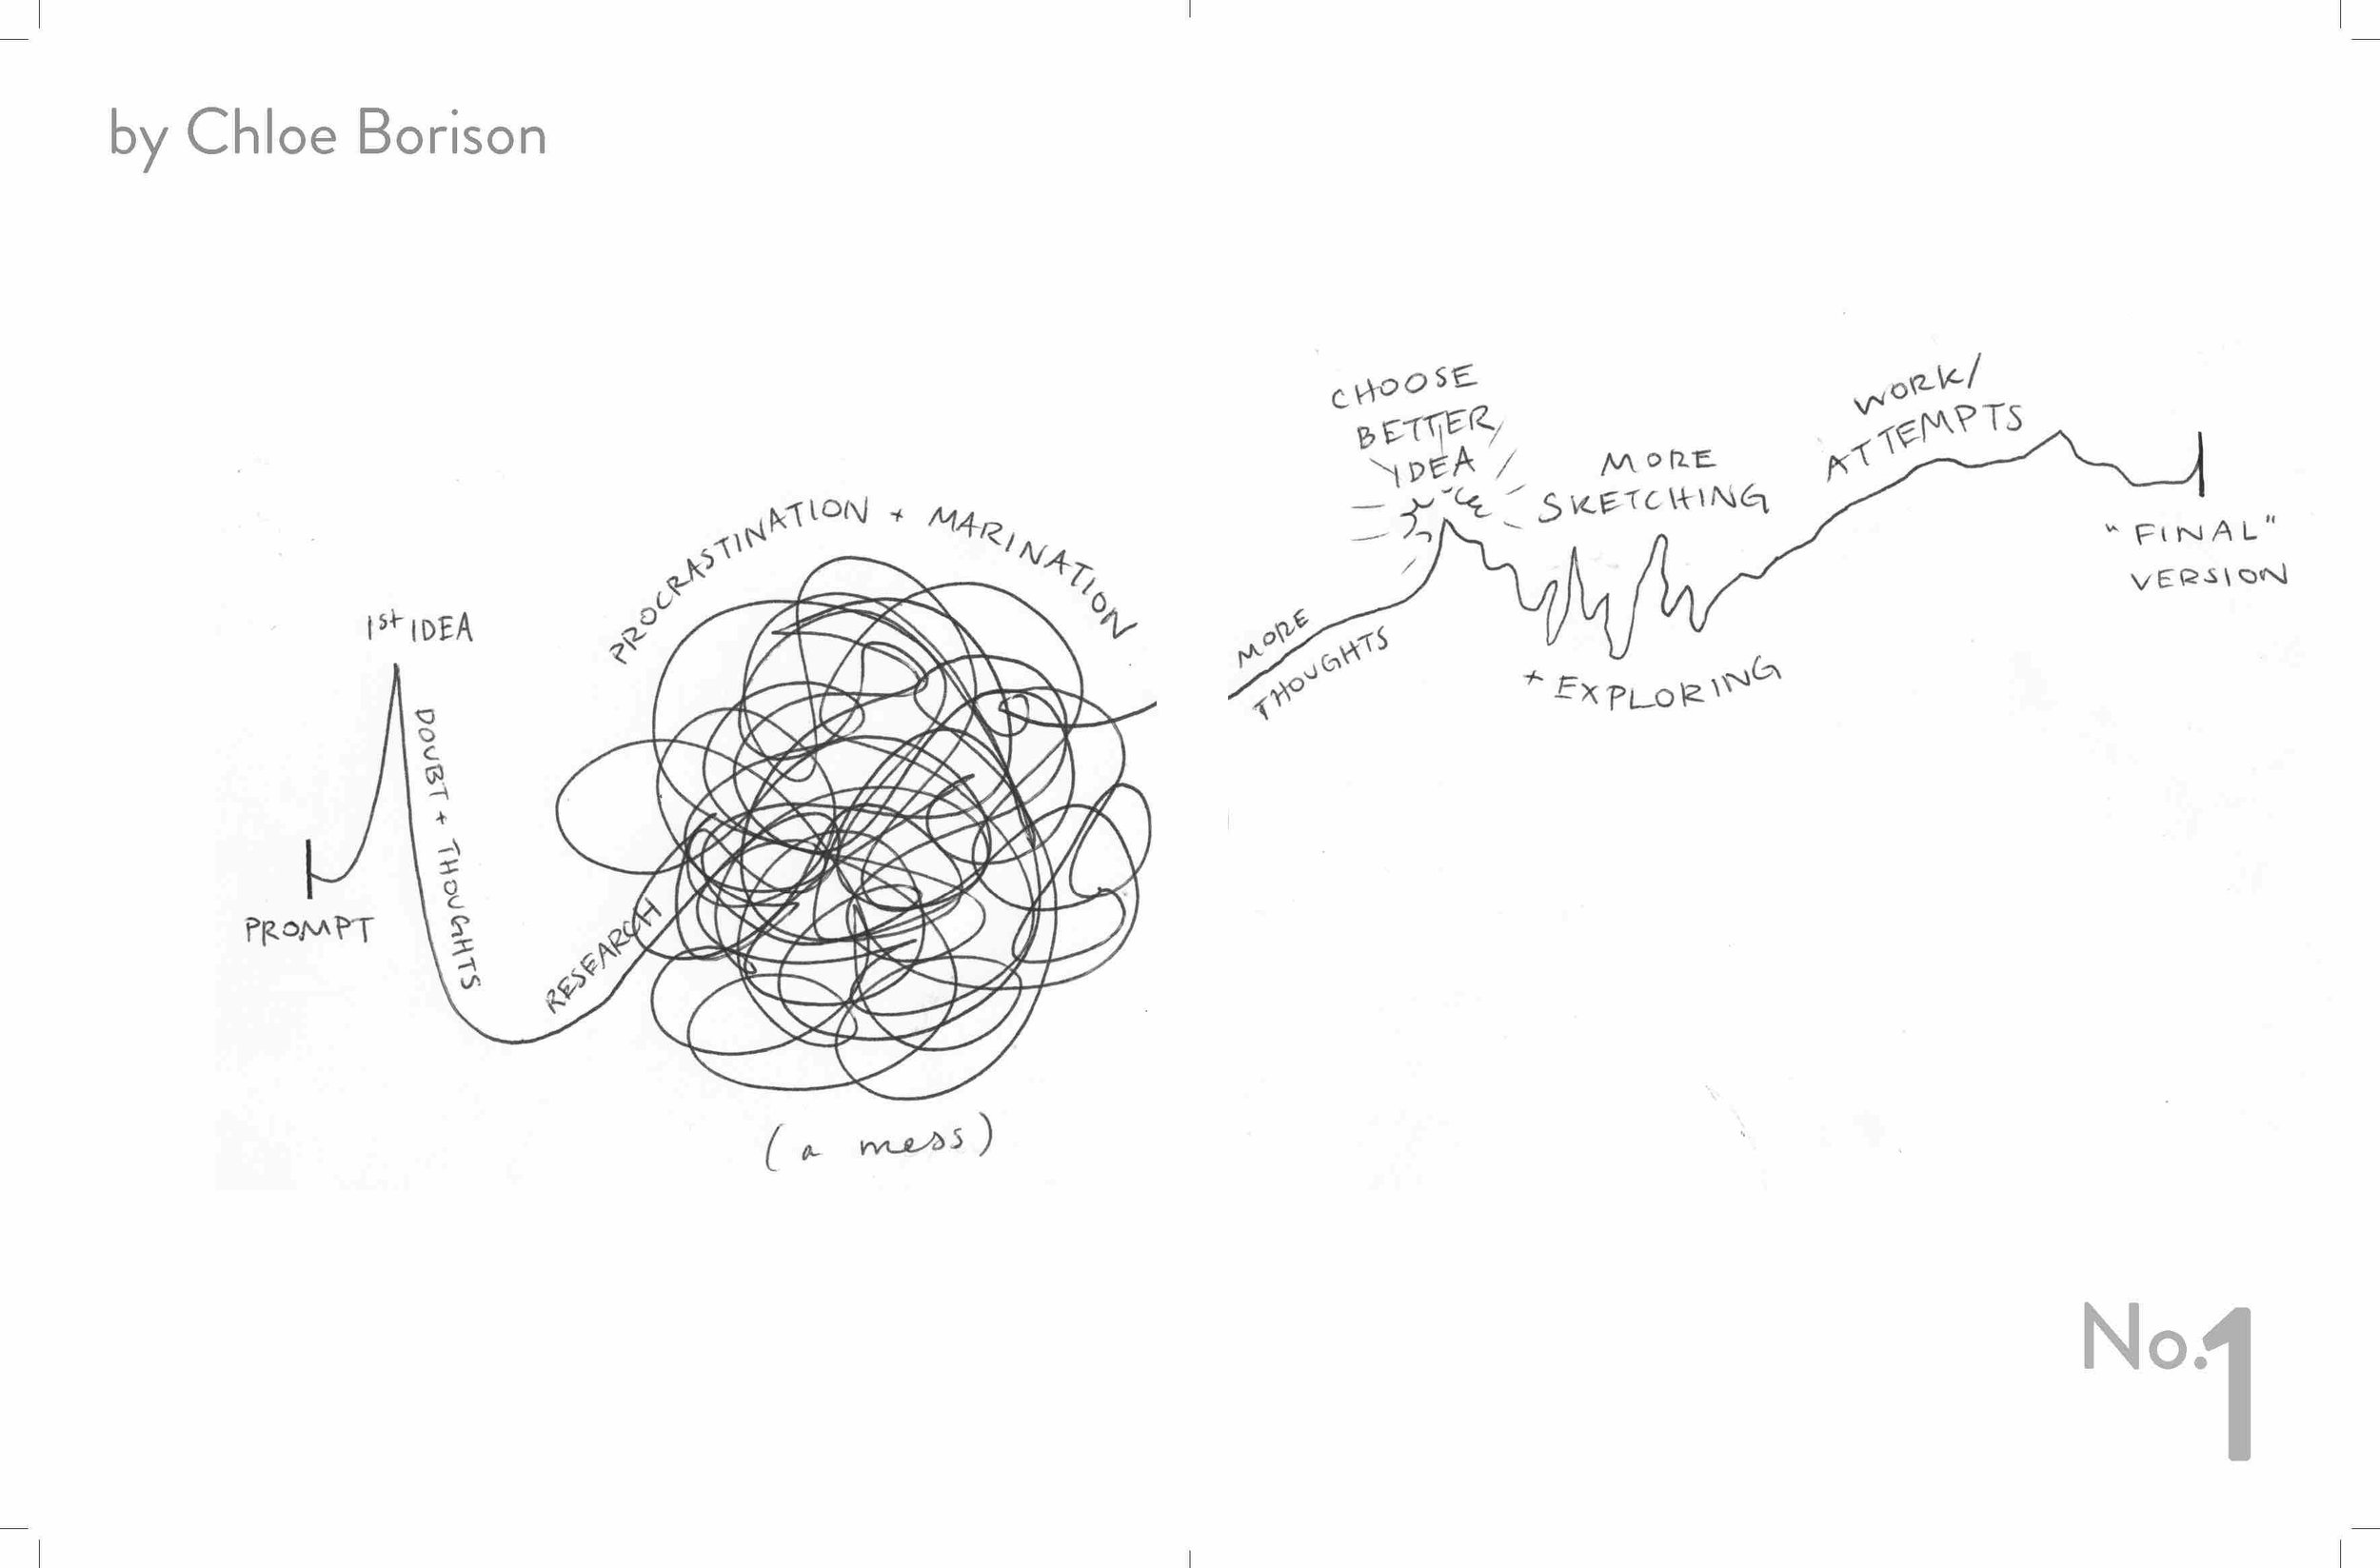 by Chloe Borison
PROMPT
1st IDEA
DOUBT + THOUGHTS
RESEARCH
PROCRASTINATION + MARINATION
(a mess)
MORE
THOUGHTS
CHOOSE
BETTER
IDEA
MORE
SKETCHING
+ EXPLORING
WORK/
ATTEMPTS
"FINAL"
VERSION
No.1